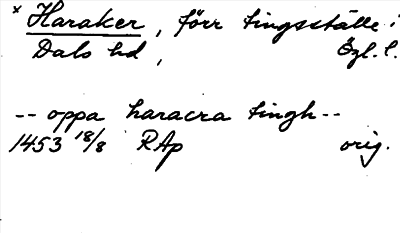 * Haraker, förr tingsställe i
Dals hd, Ögl. l.
-- oppa haracra tingh --
1453 18/8 RAp orig.